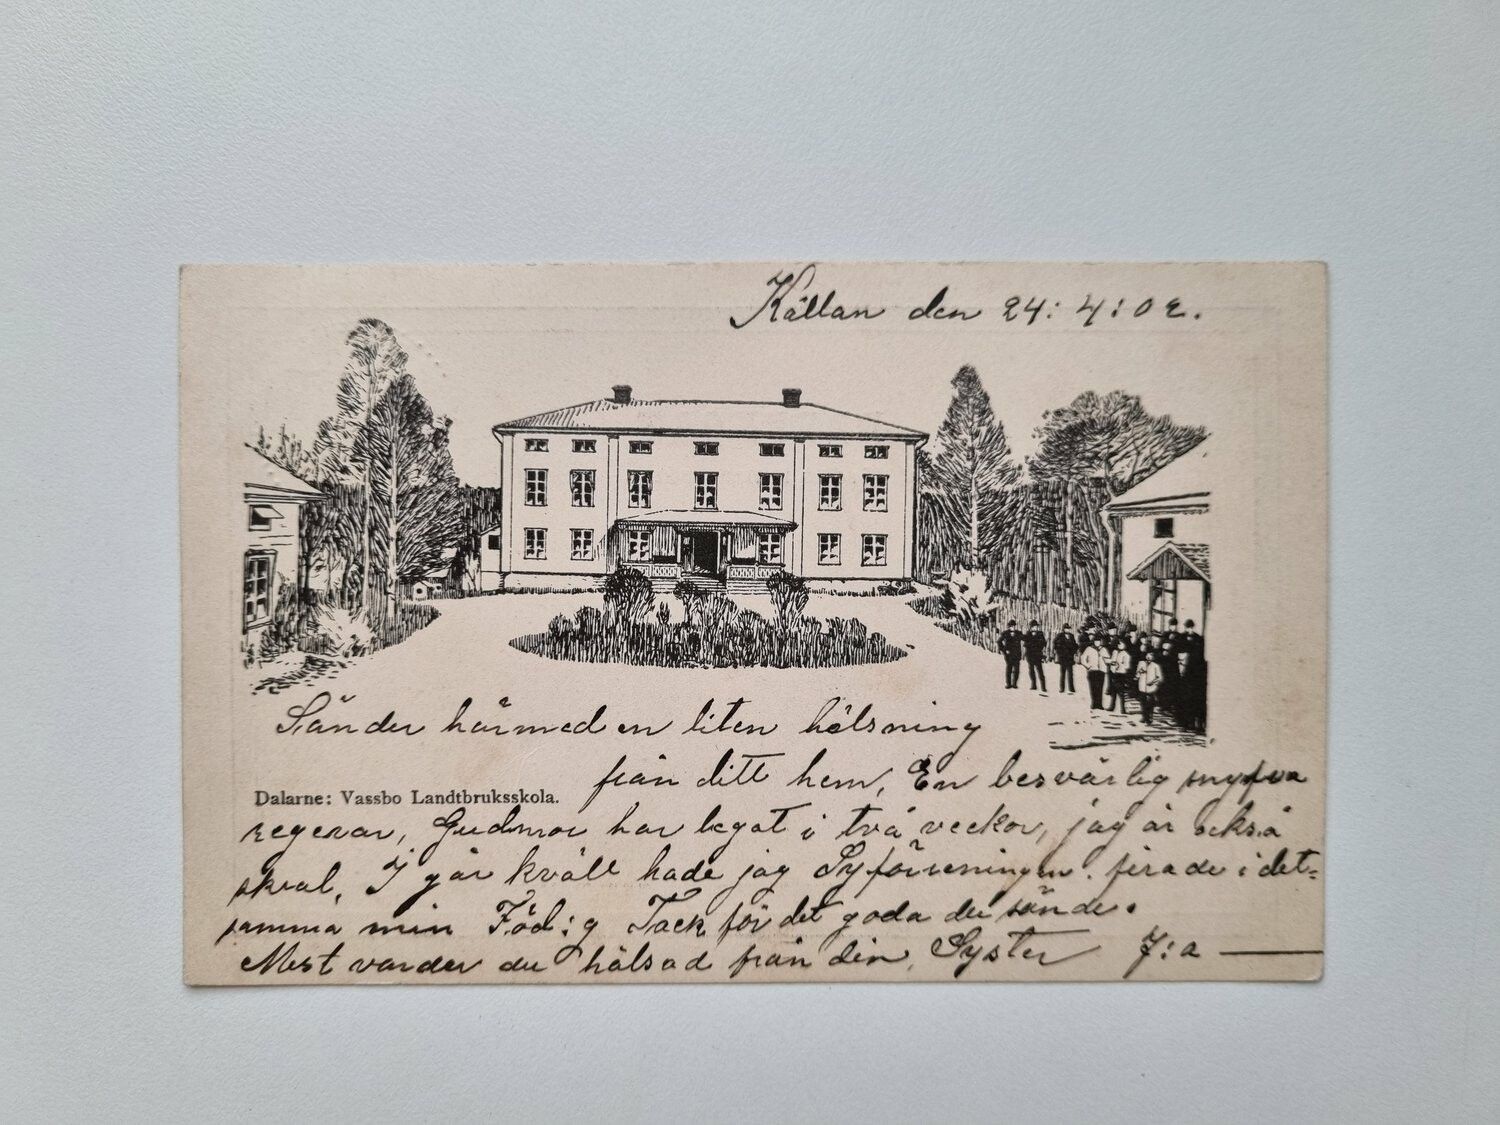 Källan den 24: 4: 02.
Sänder härmed en liten hälsning
från ditt hem, En besvärlig snufva
Dalarne: Vassbo Landtbruksskola.
regerar, Gudmor har legat i två veckor, jag är också
skral, I går kväll hade jag Syföreningen. firade i det=
samma min Föd:g Tack för det goda du sände.
Mest varder du hälsad från din Syster F:a